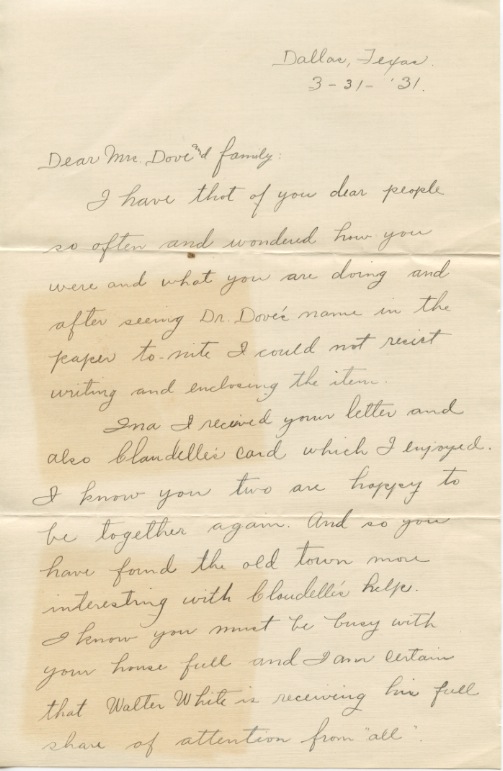 Dallas, Texas.
3-31-'31.
Dear Mrs. Dove and family:
I have that of you dear people
so often and wondered how you
were and what you are doing and
after seeing Dr. Dove's name in the
paper to-nite I could not resist
writing and enclosing the item.
Ina I received your letter and
also Claudelle's card which I enjoyed.
I know you two are happy to
be together again. And so you
have found the old town more
interesting with Claudelle's help.
I know you must be busy with
your house full and I am certain
that Walter White is receiving his full
share of attention from "all".